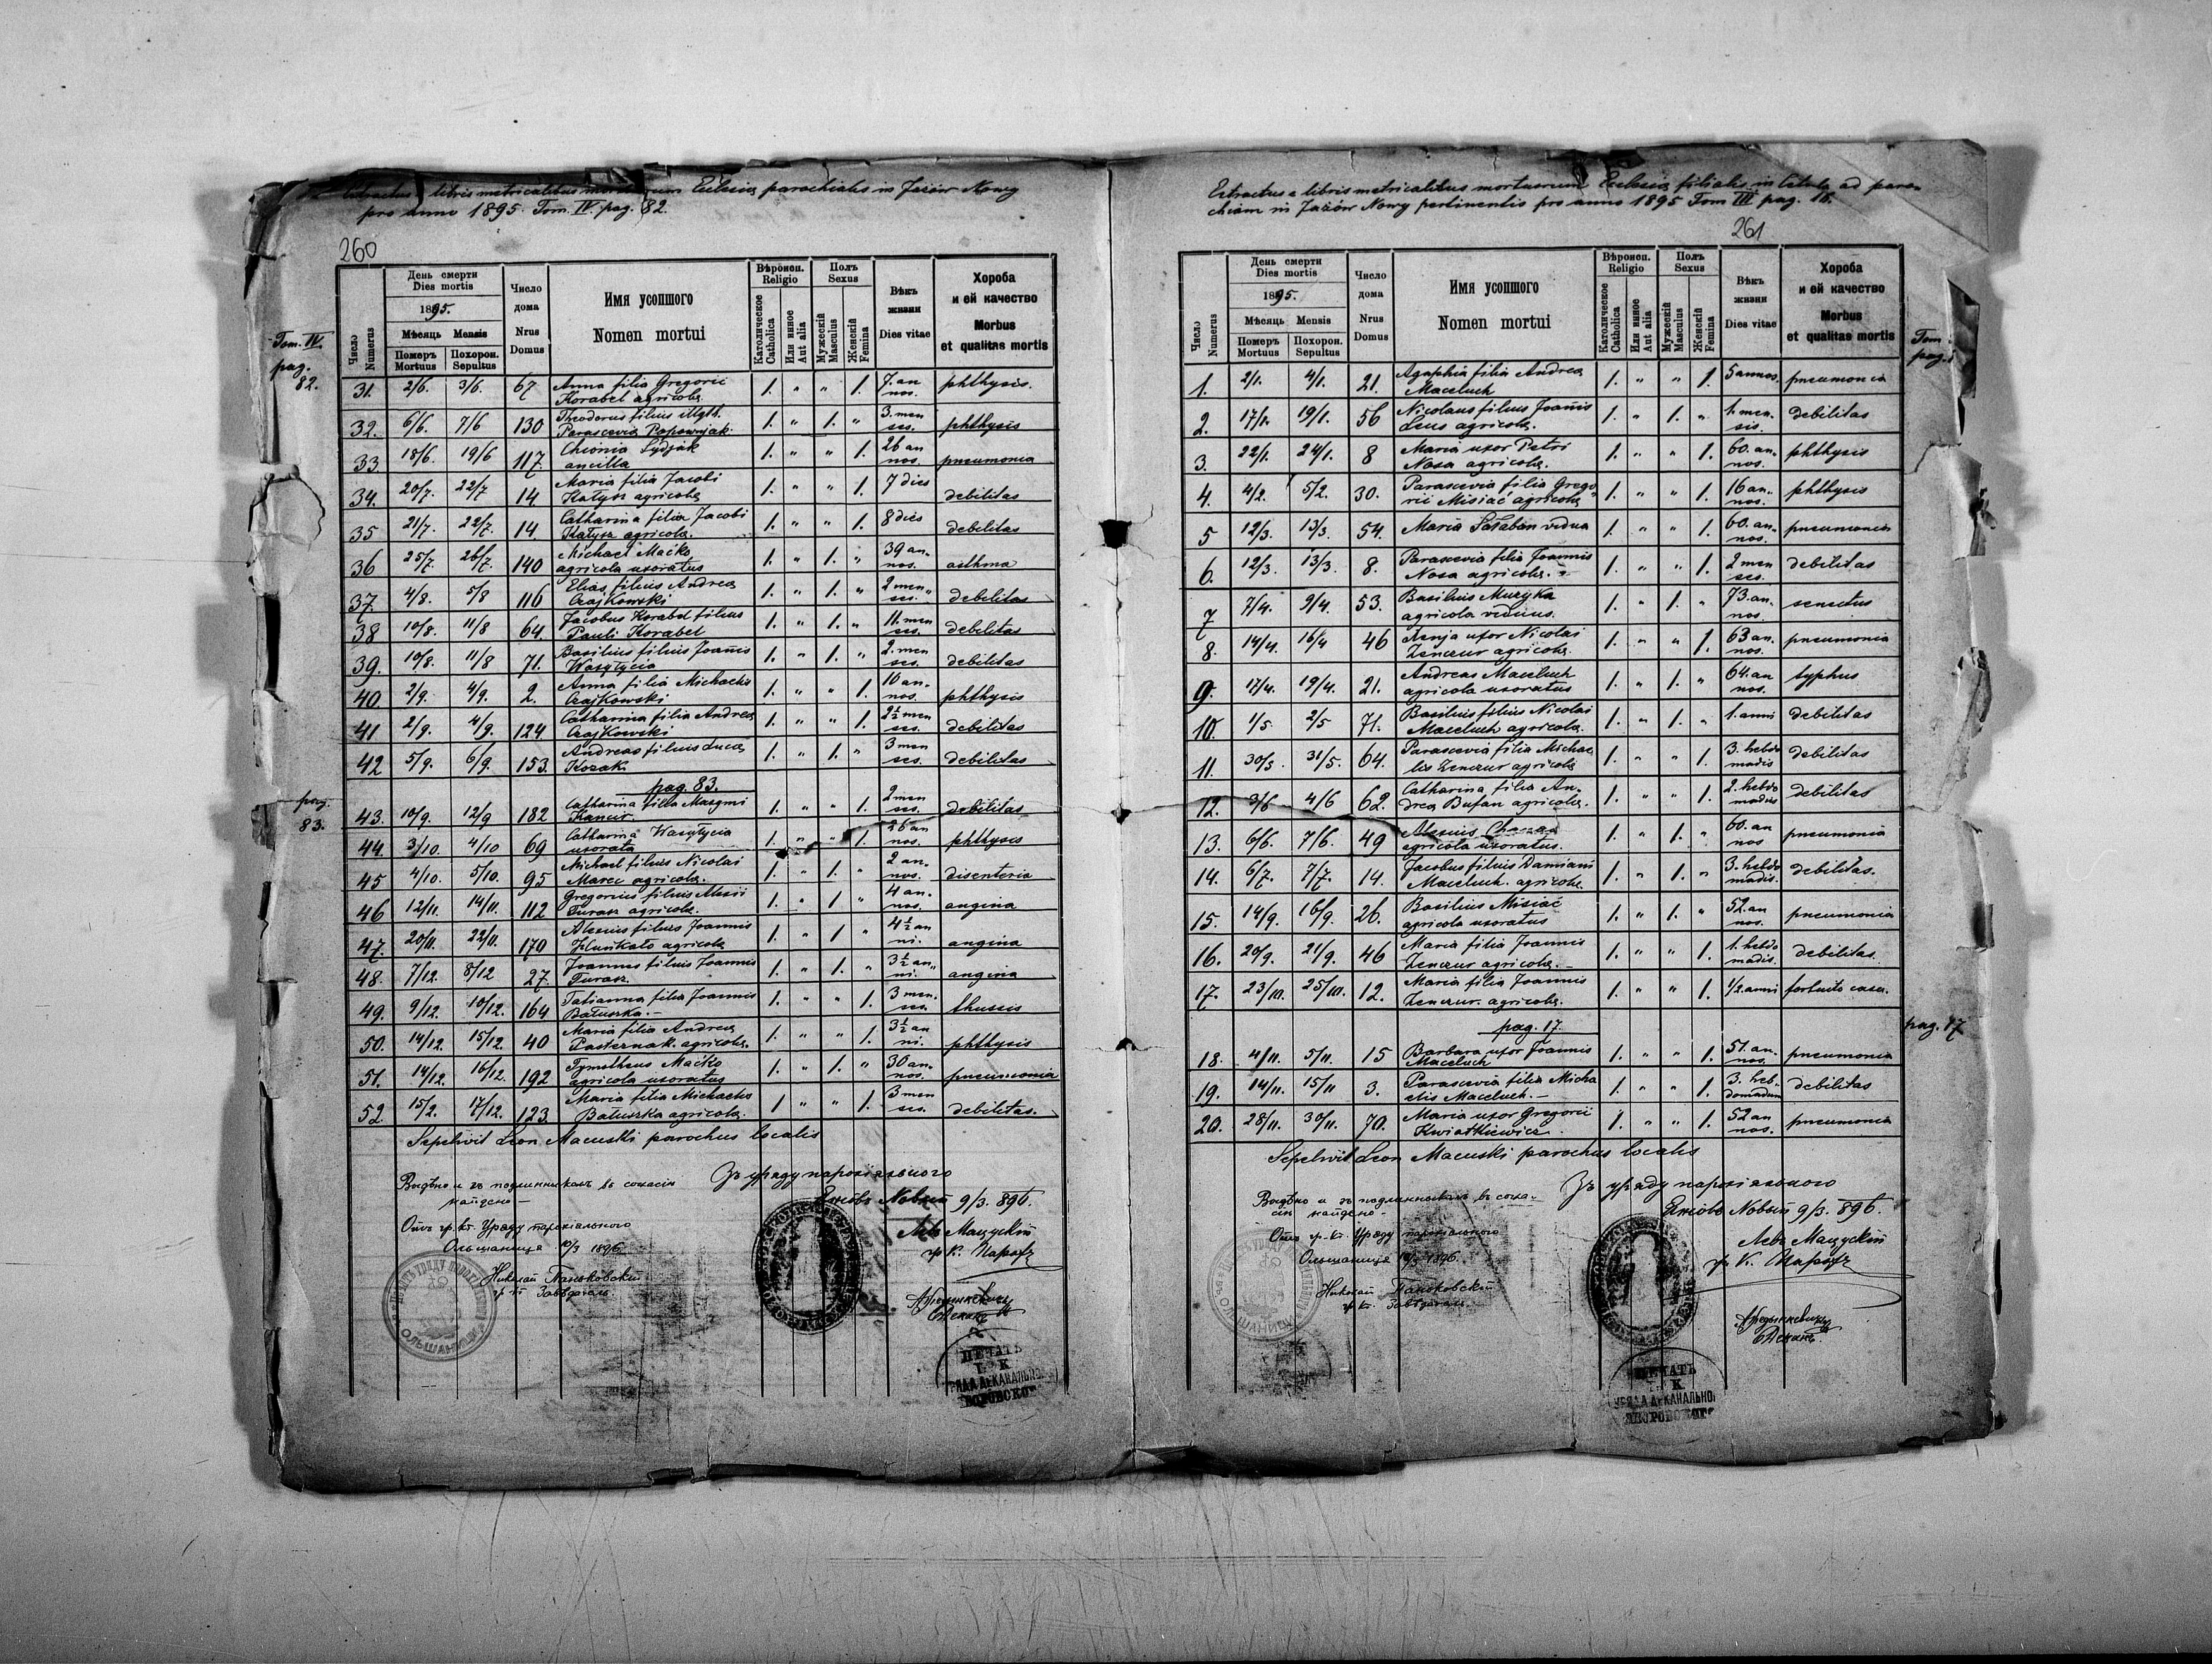 Extractus e libris metricalibus mortuorum Ecclesiæ parochialis in Jazów Nowy
pro anno 1895. Tom. IV. pag. 82.
260
Tom. IV.
pag.
82.
Число Numerus
День смерти
Dies mortis
1895.
Мѣсяць Mensis
Померъ Mortuus
Похорон. Sepultus
Число дома
Nrus Domus
Имя усопшого
Nomen mortui
Вѣроисп. Religio
Католическое Catholica
Или инное Aut alia
Полъ Sexus
Мужескій Masculus
Женскій Femina
Вѣкъ жизни
Dies vitae
Хороба и ей качество
Morbus et qualitas mortis
31. 2/6. 3/6. 67 Anna filia Gregorii Korabel agricolæ 1. " " 1. 7. annos. phthysis.
32. 6/6. 7/6 130 Theodorus filius illgtt. Parasceviæ Popownjak 1. " 1. " 3. menses. phthysis
33 18/6. 19/6 117. Chionia Sydjak ancilla 1. " " 1. 26 annos. pneumonia
34. 20/7. 22/7 14. Maria filia Jacobi Katysz agricolæ 1. " " 1. 7 dies debilitas
35 21/7. 22/7. 14. Catharina filia Jacobi Katysz agricolæ. 1. " " 1. 8 dies debilitas
36 25/7. 26/7. 140 Michael Maćko agricola uxoratus 1. " 1. " 39 annos. asthma
37. 4/8. 5/8 116 Elias filius Andreæ Czajkowski 1. " 1. " 2 menses. debilitas
38 10/8. 11/8 64. Jacobus Korabel filius Pauli Korabel 1. " 1. " 11. menses. debilitas
39. 10/8. 11/8 71. Basilius filius Joannis Wasylycia 1. " 1. " 2. menses. debilitas
40. 2/9. 4/9. 2. Anna filia Michaelis Czajkowski 1. " " 1. 10 annos. phthysis
41 2/9. 4/9. 124 Catharina filia Andreæ Czajkowski 1. " " 1. 2½ menses. debilitas
42 5/9. 6/9. 153. Andreas filius Lucæ Kozak 1. " 1. " 3 menses. debilitas
pag. 83.
pag.
83.
43. 10/9. 12/9 182 Catharina filia Maximi Kancir 1. " " 1. 2 menses. debilitas
44. 3/10. 4/10 69 Catharina Wasylycia uxorata 1. " " 1. 26 annos. phthysis
45 4/10. 5/10. 95 Michael filius Nicolai Marec agricolæ. 1. " 1. " 2 annos. disenteria
46 12/11. 14/11. 112 Gregorius filius Alexii Turasz agricolæ. 1. " 1 " 4 annos. angina
47. 20/11. 22/11. 170 Alexius filius Joannis agricolæ 1. " 1 " 4½ anni. angina
48. 7/12. 8/12 27. Joannes filius Joannis Turasz. 1. " 1. " 3½ anni. angina
49. 9/12. 10/12. 164 Tatianna filia Joannis Batuszka.- 1. " " 1. 3 menses. thussis
50. 14/12. 15/12. 40 Maria filia Andreæ Pasternak. agricolæ. 1. " " 1. 3½ anni. phthysis
51. 14/12. 16/12. 192 Tymotheus Maćko agricola uxoratus 1. " 1. " 30 annos. pneumonia
52. 15/2. 17/12. 123. Maria filia Michaelis Batuszka agricolæ. 1 " " 1. 3 menses. debilitas.
Sepelivit Leon Macuski parochus localis
Зъ уряду парохіяльного
Видѣно и зъ подлинникомъ въ согласіи
найдено -
Язовъ Новый 9/3. 896.
Отъ гр. кт. Уряду парохіяльного
Ольшаница 10/3 1896
Левъ Мацускій
гр. К. Парохъ
Николай Паньковскій
гр кт Завѣдатель
Деканъ
ОЛЬШАНИЦИ
ПЕЧАТЬ
Г. К
УРЯДА ДЕКАНАЛЬНО
ЯВОРОВСКОГО
Extractus e libris metricalibus mortuorum Ecclesiæ filialis in Cetula ad paro-
chiam in Jazów Nowy pertinentis pro anno 1895 Tom III pag. 16.
261
Tom.
pag.
Число Numerus
День смерти
Dies mortis
1895.
Мѣсяць Mensis
Померъ Mortuus
Похорон. Sepultus
Число дома
Nrus Domus
Имя усопшого
Nomen mortui
Вѣроисп. Religio
Католическое Catholica
Или инное Aut alia
Полъ Sexus
Мужескій Masculus
Женскій Femina
Вѣкъ жизни
Dies vitae
Хороба и ей качество
Morbus et qualitas mortis
1. 2/1. 4/1. 21. Agaphia filia Andreæ Maceluch 1. " " 1. 5 annos. pneumonia
2. 17/1. 19/1. 56 Nicolaus filius Joannis Leus agricolæ. 1. " 1. " 1. mensis. debilitas
3. 22/1. 24/1. 8 Maria uxor Petri Nosa agricolæ. 1. " " 1. 60. annos. phthysis
4. 4/2. 5/2. 30. Parascevia filia Gregorii Misiać agricolæ 1. " " 1. 16 annos. phthysis
5 12/3. 13/3. 54. Maria Sałaban vidua 1. " " 1. 60. annos. pneumonia
6. 12/3. 13/3. 8. Parascevia filia Joannis Nosa agricolæ. 1. " " 1. 2 menses. debilitas
7 7/4. 9/4. 53. Basilius Muzyka agricola viduus. 1. " 1. " 73. annos. senectus
8. 14/4. 16/4 46 Xenja uxor Nicolai Zenczur agricolæ. 1. " " 1. 63 annos. pneumonia
9. 17/4. 19/4. 21. Andreas Maceluch agricola uxoratus 1. " 1. " 64. annos. typhus
10. 1/5. 2/5 71. Basilius filius Nicolai Maceluch agricolæ. 1. " 1. " 1. anni debilitas
11. 30/5. 31/5. 64. Parascevia filia Michaelis Zenczur agricolæ 1. " " 1. 3. hebdomadis debilitas
12. 3/6 4/6 62. Catharina filia Andreæ Bufan agricolæ. 1. " " 1. 2. hebdomadis debilitas
13. 6/6. 7/6. 49 Alexius agricola uxoratus. 1. " 1. " 60. annos pneumonia
14. 6/7. 7/7. 14. Jacobus filius Damiani Maceluch. agricolæ. 1. " 1. " 3. hebdomadis. debilitas.
15. 14/9. 16/9. 26. Basilius Misiać agricola uxoratus 1. " 1. " 52. annos. pneumonia
16. 20/9. 21/9. 46 Maria filia Joannis Zenczur agricolæ.- 1. " " 1. 1. hebdomadis. debilitas.
17. 23/10. 25/10. 12. Maria filia Joannis Zenczur. agricolæ. 1. " " 1. 1/2. anni fortuito casu.
pag. 17.
pag. 17
18. 4/11. 5/11. 15 Barbara uxor Joannis Maceluch 1. " " 1. 51. annos. pneumonia
19. 14/11. 15/11 3. Parascevia filia Michaelis Maceluch.- 1. " " 1. 3. hebdomadum debilitas
20. 28/11. 30/11. 70. Maria uxor Gregorii Kwiatkiewicz 1. " " 1. 52 annos. pneumonia
Sepelivit Leon Macuski parochus localis
Зъ уряду парохіяльного
Видѣно и зъ подлинникомъ въ согла-
сіи найдено -
Язовъ Новый 9/3. 896.
Отъ гр. кт. Уряду парохіяльного
Ольшаница 10/3 1896.
Левъ Мацускій
гр К. Парохъ
Николай Паньковскій
гр кт. Завѣдатель
Деканъ
ПЕЧАТЬ
Г. К
УРЯДА ДЕКАНАЛЬНО
ЯВОРОВСКОГО